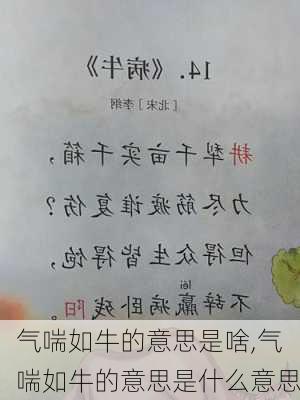 14.《病牛》
［北宋］李纲
耕犁千亩实千箱，
力尽筋疲谁复伤？
但得众生皆得饱，
léi
不辞羸病卧残阳。
气喘如牛的意思是啥,气
喘如牛的意思是什么意思